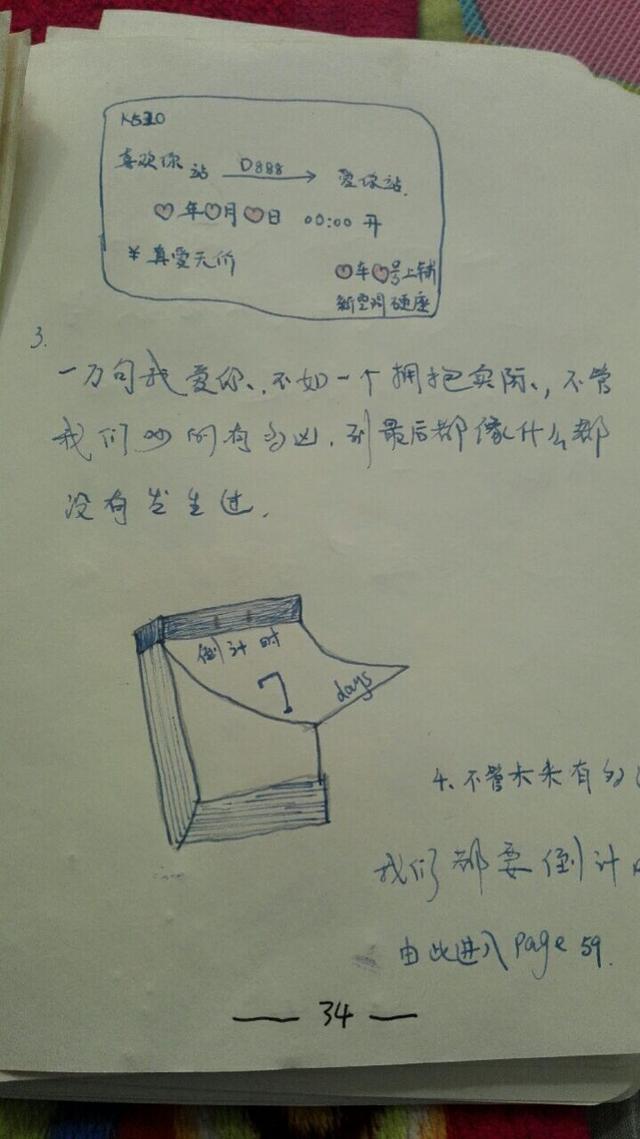 喜欢你 站 D888 爱你站
♡年♡月♡日 00:00 开
¥真爱无价
♡车♡号上铺
新空调硬座
3.
一万句我爱你、不如一个拥抱实际、,不管
我们吵的有多凶,到最后都像什么都
没有发生过.
倒计时
7
days
4、不管未来有多
我们都要倒计
由此进入 page 59.
— 34 —